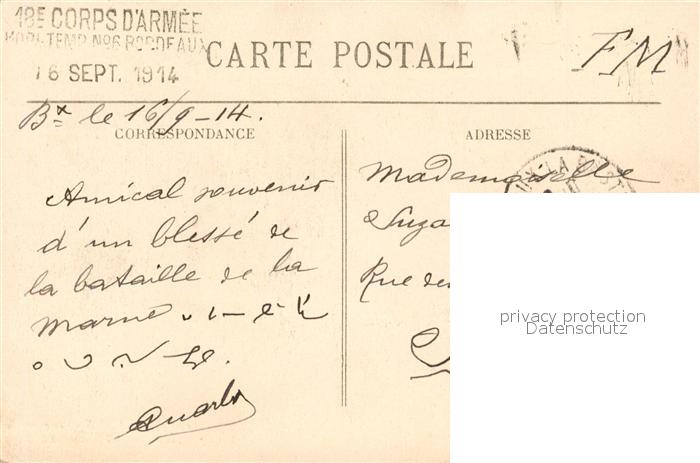 18E CORPS D'ARMÉE
HOPL TEMP. No6 BORDEAUX
16 SEPT. 1914
CARTE POSTALE
FM
Bx le 16/9-14.
CORRESPONDANCE
ADRESSE
Amical souvenir
d'un blessé de
la bataille de la
Marne
Mademoiselle
Suza
Rue de
privacy protection
Datenschutz